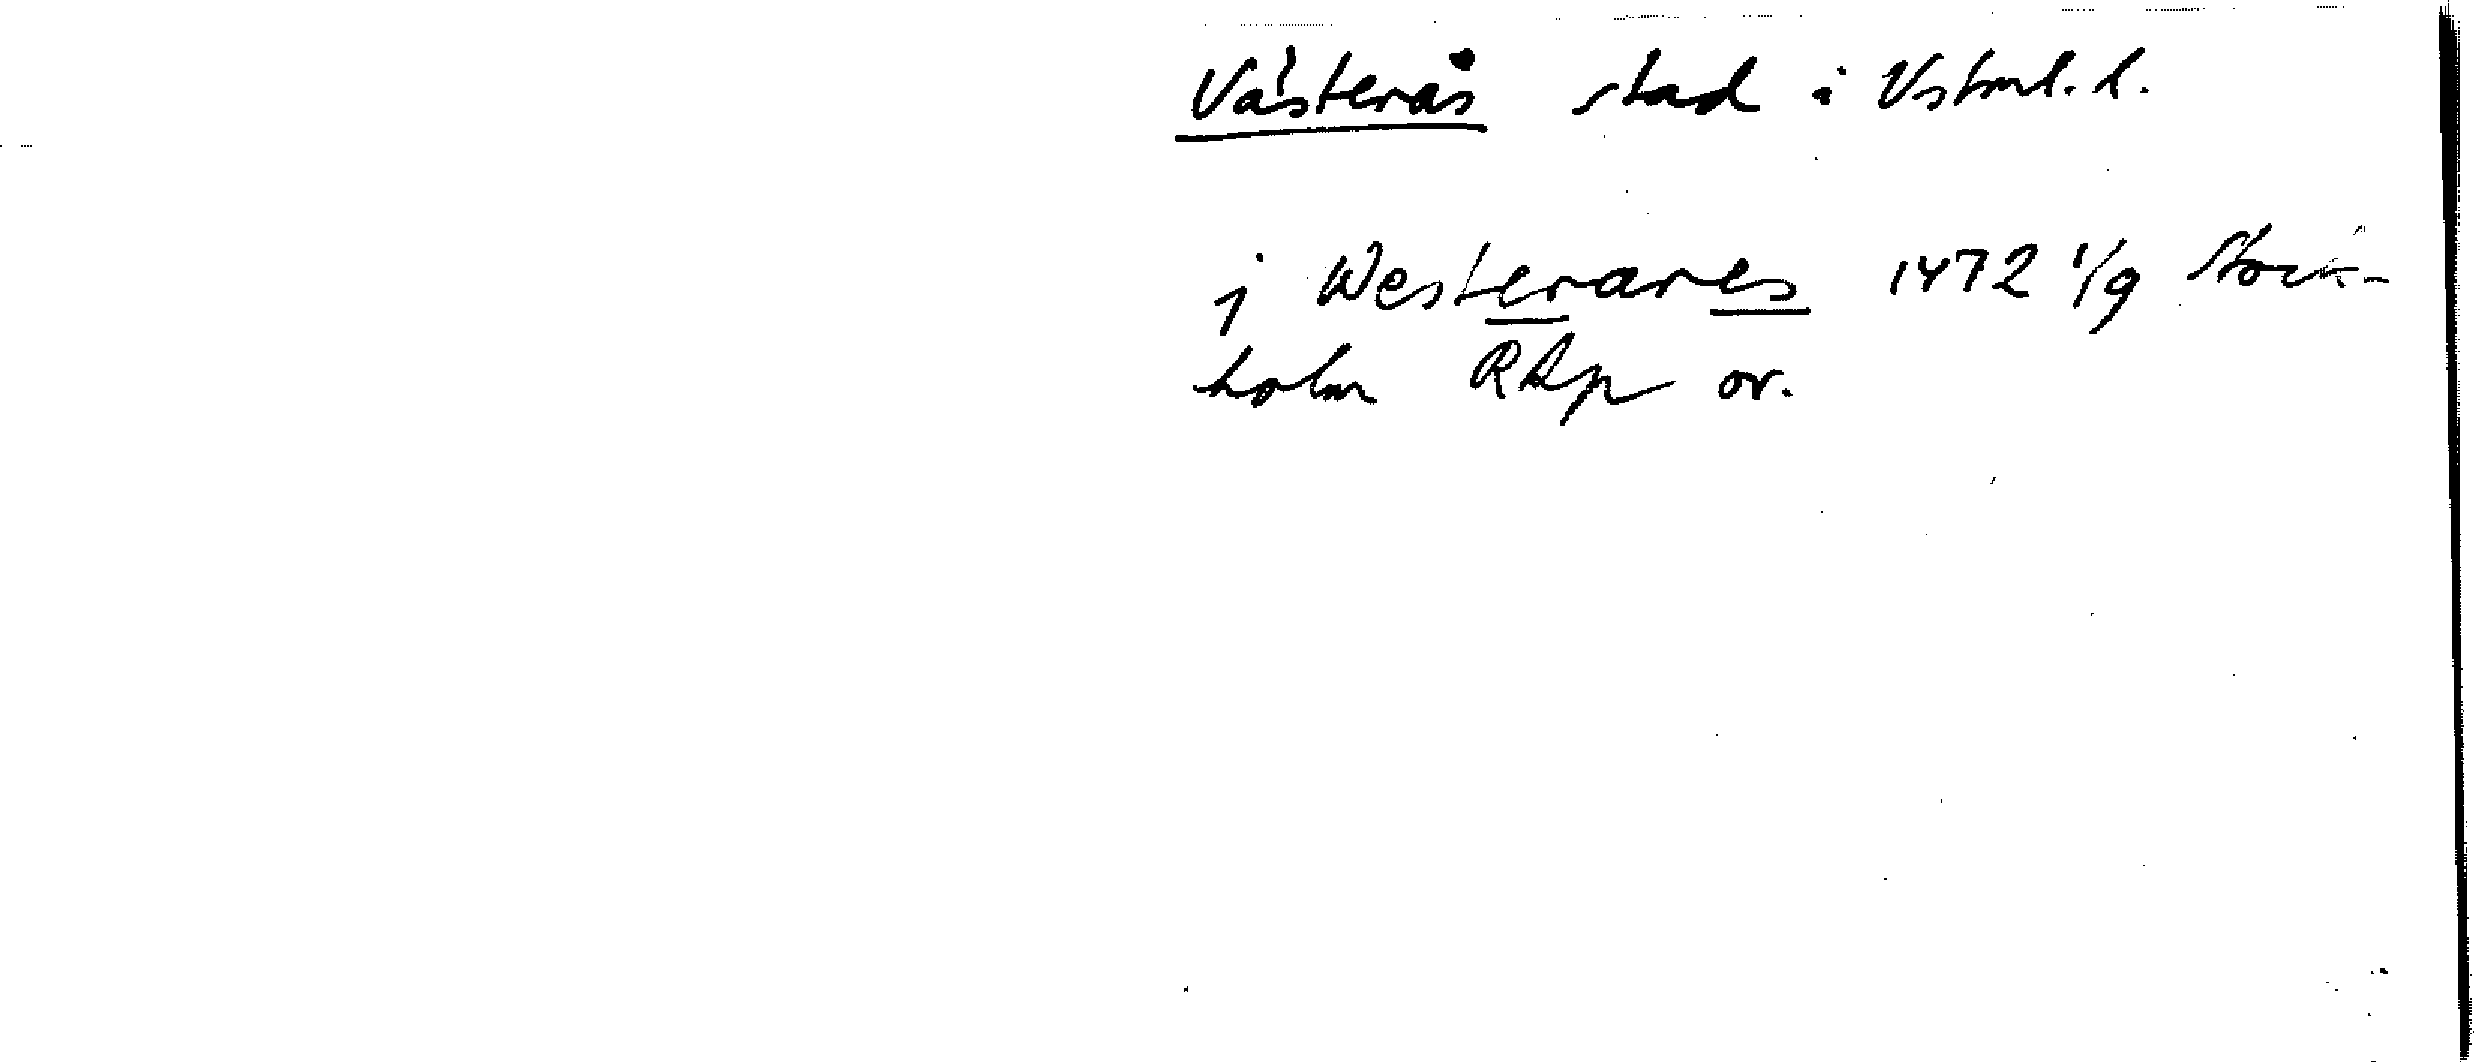 Västerås stad i Vstml. l.
j Westerares 1472 1/9 Stock-
holm RAp or.